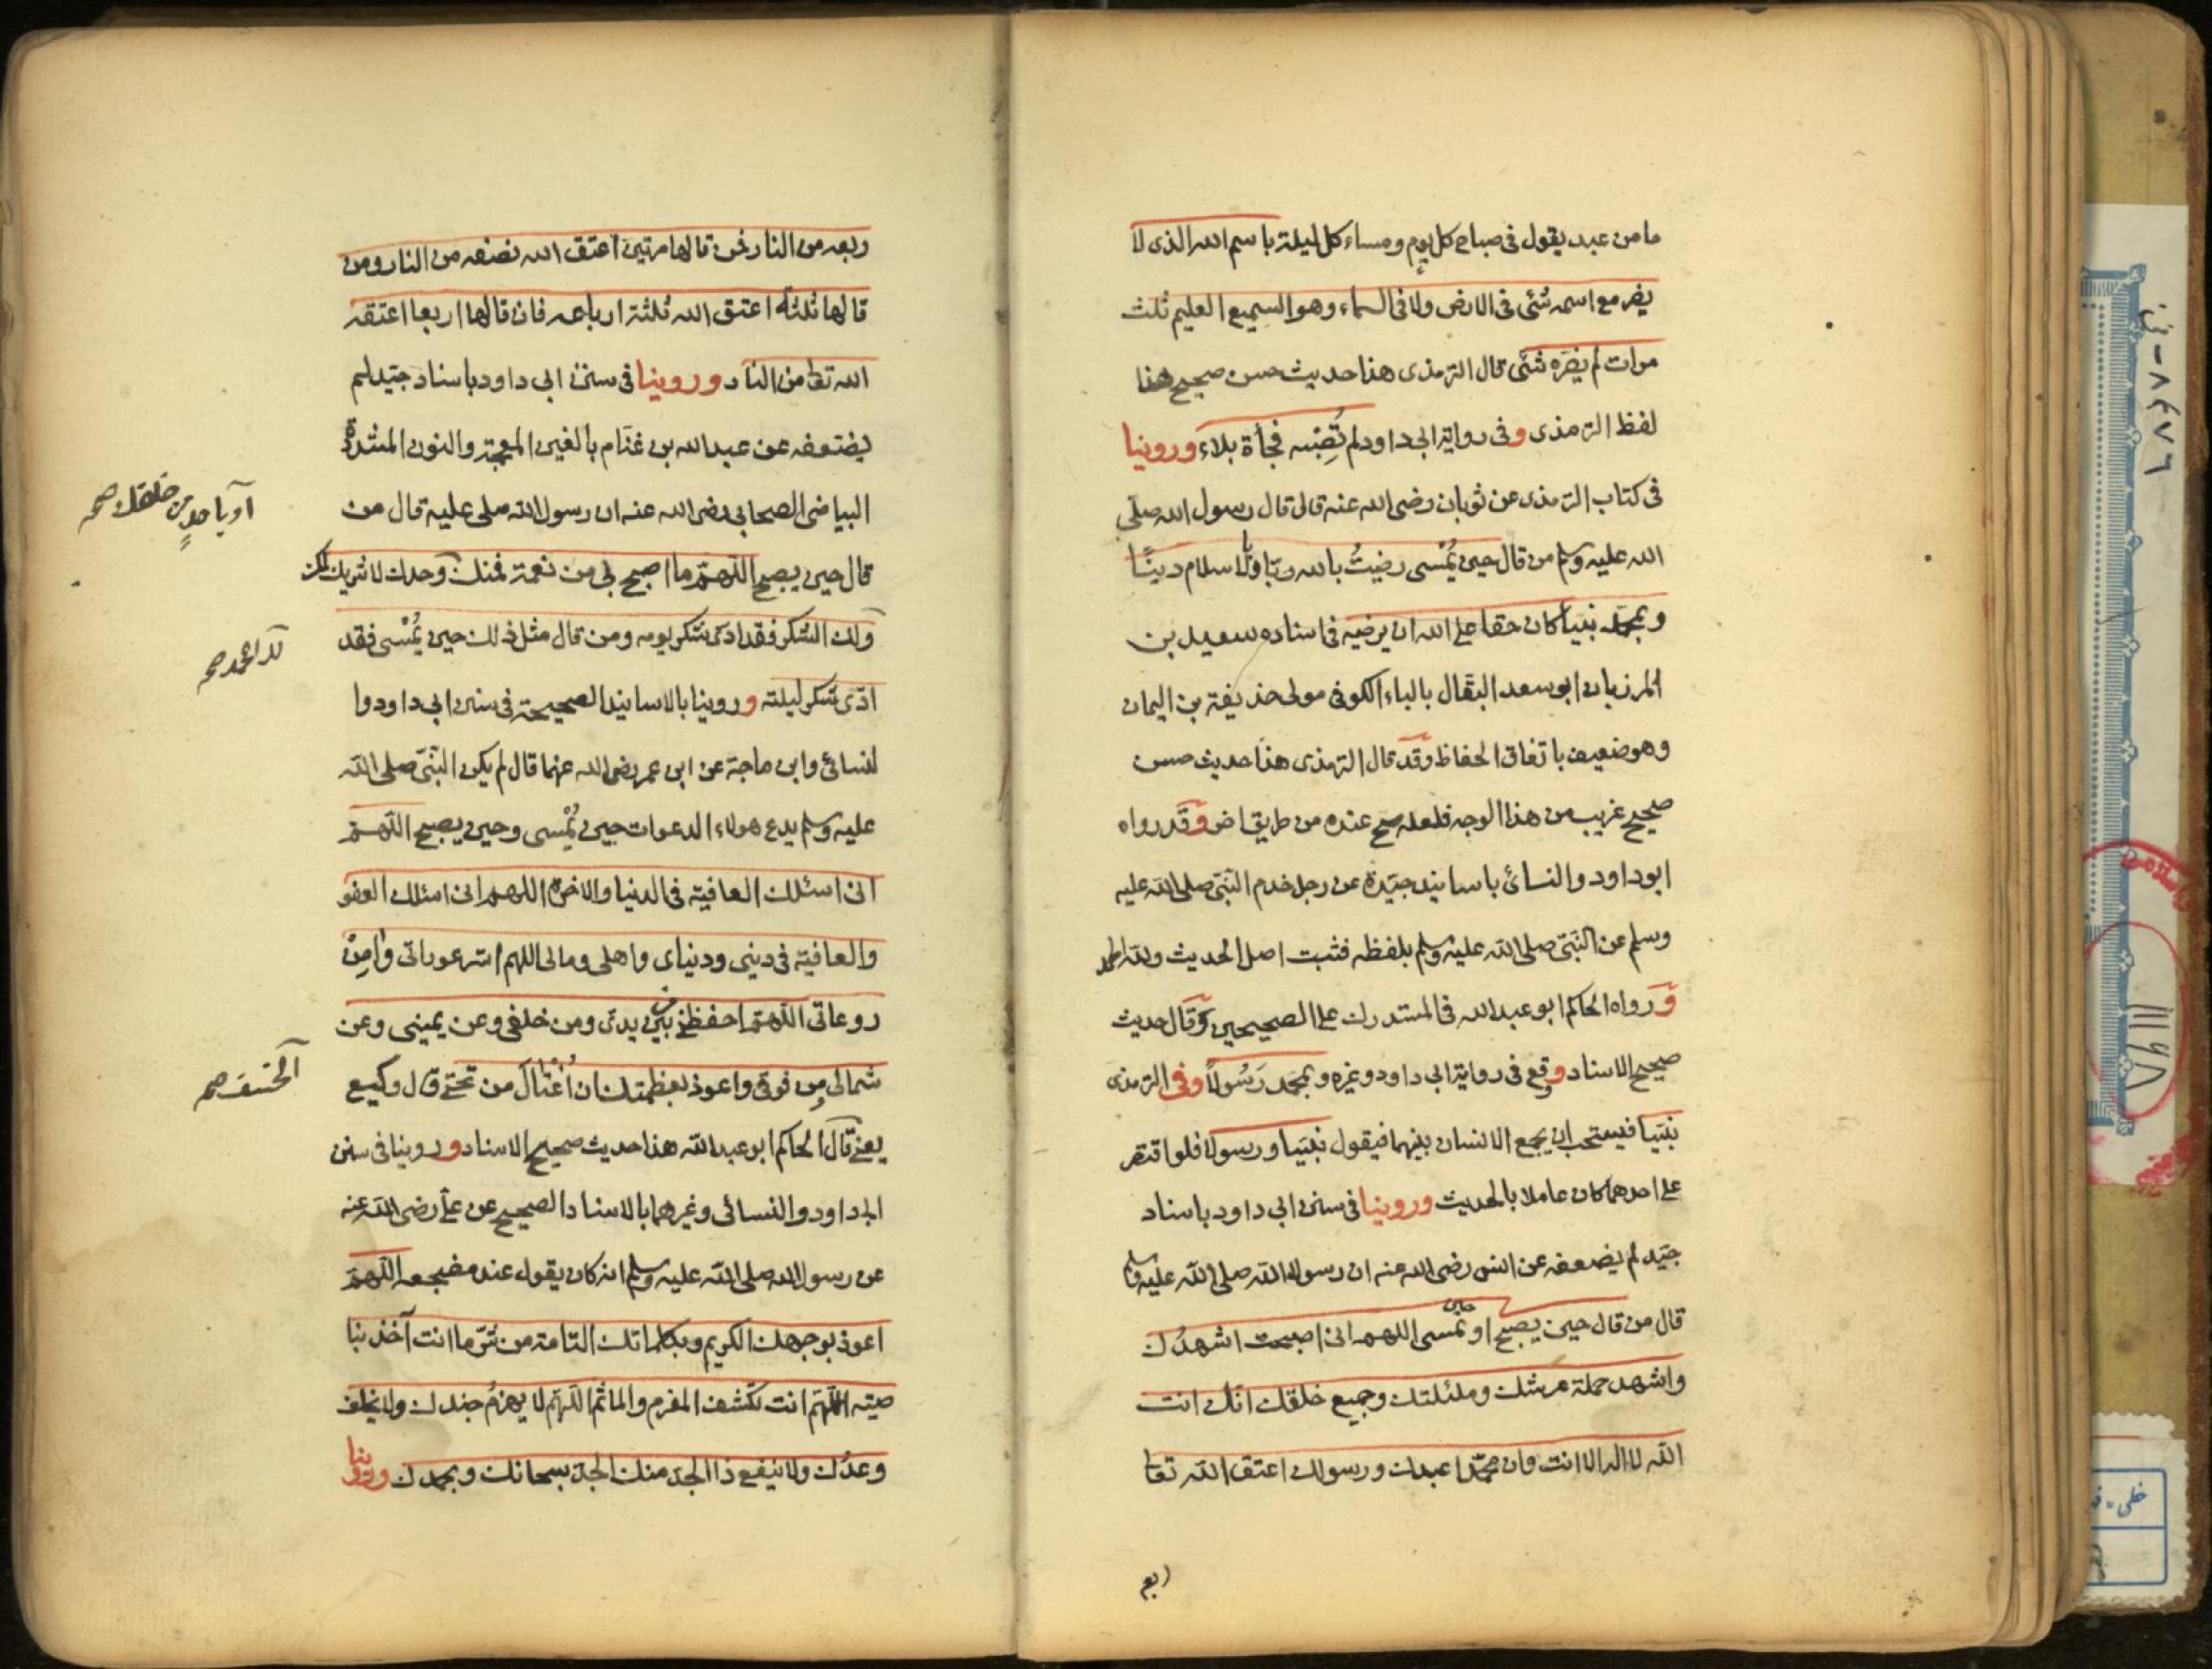 ما من عبد يقول فى صباح كل يوم ومساء كل ليلة باسم الله الذى لا
يضر مع اسمه شئى فى الارض ولا فى السماء وهو السميع العليم ثلث
مرات لم يضره شئى قال الترمذى هذا حديث حسن صحيح هذا
لفظ الترمذى وفى رواية ابى داود لم تُصِبْه فجأة بلاء وروينا
فى كتاب الترمذى عن ثوبان رضى الله عنه قال قال رسول الله صلى
الله عليه وسلم من قال حين يُمْسى رضيتُ بالله ربا وبالاسلام دينًا
وبمحمد نبيا كان حقا على الله ان يرضيه فى اسناده سعيد بن
المرزبان ابو سعد البقال بالباء الكوفى مولى حذيفة بن اليمان
وهو ضعيف باتفاق الحفاظ وقد قال الترمذى هذا حديث حسن
صحيح غريب من هذا الوجه فلعله صح عنده من طريق اخر وقد رواه
ابو داود والنسائ باسانيد جيّدة عن رجل خدم النّبىّ صلى الله عليه
وسلم عن النّبىّ صلى الله عليه وسلم بلفظه فثبت اصل الحديث ولله الحمد
ورواه الحاكم ابو عبدالله فى المستدرك على الصحيحين وقال حديث
صحيح الاسناد وقع فى رواية ابى داود وغيره وبمحمد رَسُولاً وفى الترمذى
نبيّا فيستحب ان يجمع الانسان بينهما فيقول نبيّا ورسولا فلو اقتصر
على احدهما كان عاملا بالحديث وروينا فى سنن ابى داود باسناد
جيّد لم يضعفه عن انس رضى الله عنه ان رسول الله صلى الله عليه وسلم
قال من قال حين يصبح او حين يمسى اللهم انى اصبحت اشهدُك
واشهد حملة عرشك وملئكتك وجميع خلقك انّك انت
الله لا اله الا انت وان محمّدا عبدك ورسولك اعتق الله تعالى
ربع
ربعه من النار فمن قالها مرتين اعتق الله نصفه من النار ومن
قالها ثلثه اعتق الله ثلثة ارباعه فان قالها اربعا اعتقه
الله تعالى من النار وروينا فى سنن ابى داود باسناد جيّد لم
يضعفه عن عبدالله بن غنّام بالغين المعجمة والنون المشدّدة
البياضى الصحابى رضى الله عنه ان رسول الله صلى عليه قال من
قال حين يصبح اللّهمّ ما اصبح بى من نعمة فمنك وحدك لا شريك لك
ولك الشكر فقد ادّى شكر يومه ومن قال مثل ذلك حين يُمْسى فقد
ادّى شكر ليلته وروينا بالاسانيد الصحيحة فى سنن ابى داود وا
لنسائ وابن ماجة عن ابن عمر رضى الله عنهما قال لم يكن النّبىّ صلى الله
عليه وسلم يدع هولاء الدعوات حين يُمْسى وحين يصبح اللّهمّ
انى اسئلك العافية فى الدنيا والاخرة اللهم انى اسئلك العفو
والعافية فى دينى ودنياى واهلى ومالى اللهم استر عوراتى وامِنْ
روعاتى اللّهمّ احفظنى من بين يدىّ ومن خلفى وعن يمينى وعن
شمالى ومن فوقى واعوذ بعظمتك ان اُغْتالَ من تحتى قال وكيع
يعنى قال الحاكم ابو عبدالله هذا حديث صحيح الاسناد وروينا فى سنن
ابى داود والنسائى وغيرهما بالاسناد الصحيح عن على رضى الله عنه
عن رسول الله صلى الله عليه وسلم انه كان يقول عند مضجعه اللّهمّ
اعوذ بوجهك الكريم وبكلماتك التامة من شرّ ما انت آخذ بنا
صيته اللّهمّ انت تكشف المغرم والماثم اللّهمّ لا يهزمُ جندك ولا يخلف
وعدُك ولا ينفع ذا الجدّ منك الجدّ سبحانك وبحمدك وروينا
او باحدٍ من خلقك صح
لك الحمد صح
الخسف صح